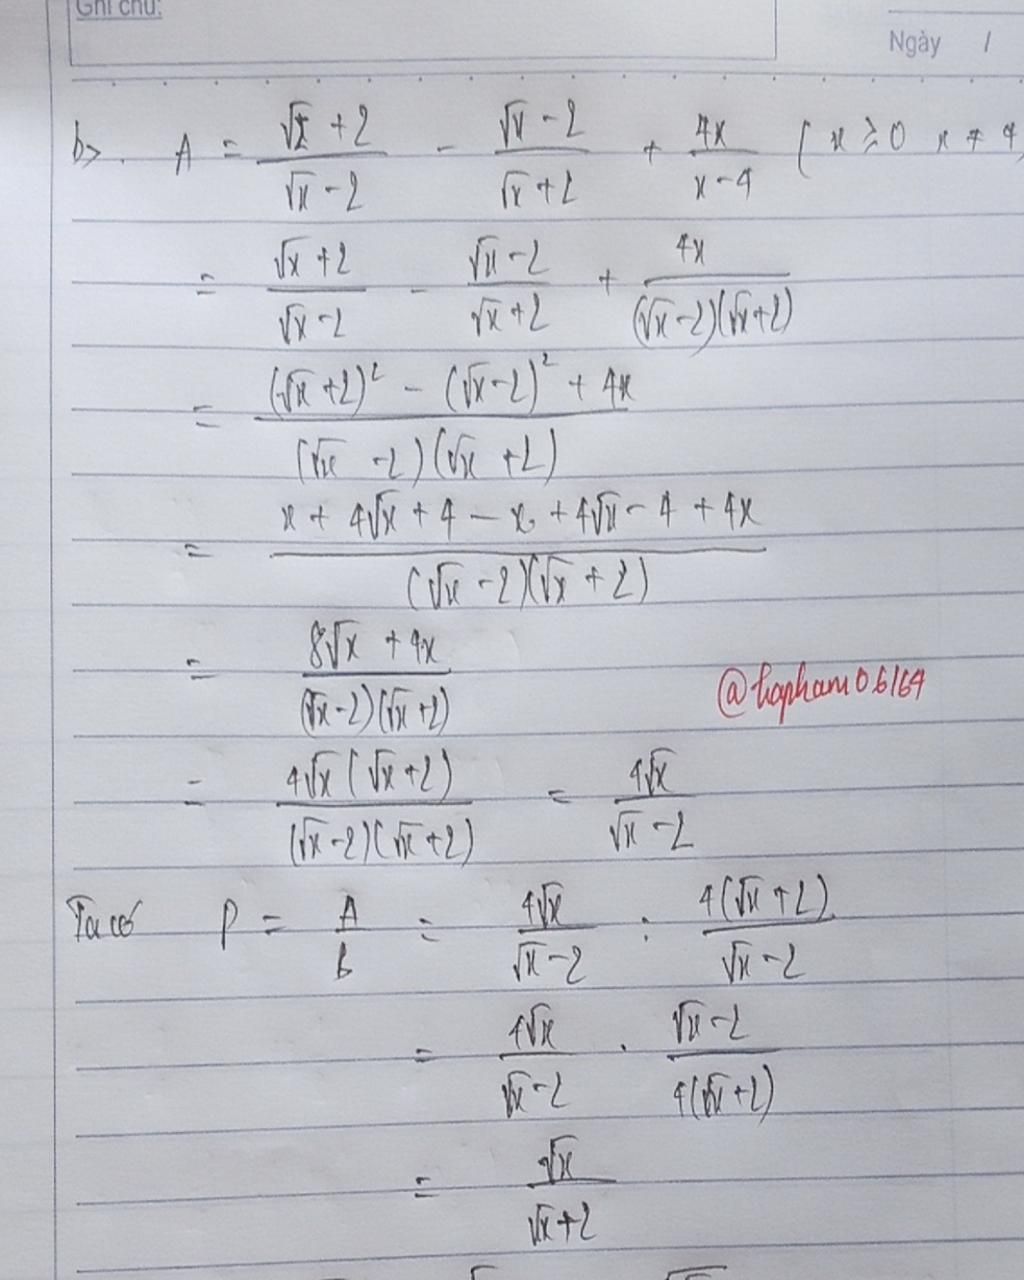 Ghi chú:
Ngày /
b>. A = (√x + 2)/(√x - 2) - (√x - 2)/(√x + 2) + 4x/(x - 4) ( x ≥ 0 x ≠ 4)
= (√x + 2)/(√x - 2) - (√x - 2)/(√x + 2) + 4x/((√x - 2)(√x + 2))
= ((√x + 2)² - (√x - 2)² + 4x)/((√x - 2)(√x + 2))
= (x + 4√x + 4 - x + 4√x - 4 + 4x)/((√x - 2)(√x + 2))
= (8√x + 4x)/((√x - 2)(√x + 2))
@hapham06164
= (4√x(√x + 2))/((√x - 2)(√x + 2)) = 4√x/(√x - 2)
Ta có P = A/B = 4√x/(√x - 2) : (4(√x + 2))/(√x - 2)
= 4√x/(√x - 2) . (√x - 2)/(4(√x + 2))
= √x/(√x + 2)